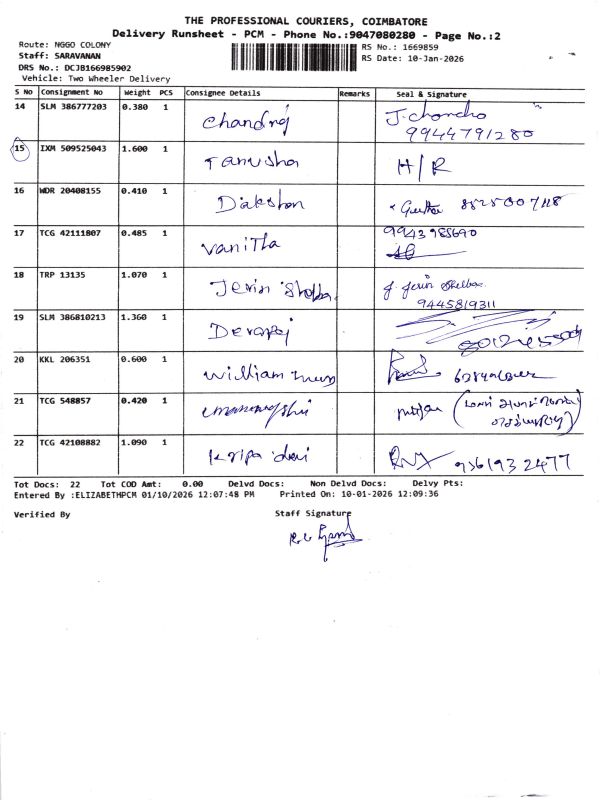 THE PROFESSIONAL COURIERS, COIMBATORE
Delivery Runsheet - PCM - Phone No.:9047080280 - Page No.:2
Route: NGGO COLONY
Staff: SARAVANAN
DRS No.: DCJB166985902
Vehicle: Two Wheeler Delivery
RS No.: 1669859
RS Date: 10-Jan-2026
S No Consignment No Weight PCS Consignee Details Remarks Seal & Signature
14 SLM 386777203 0.380 1 Chandraj J. Chandra
9944791280
15 IXM 509525043 1.600 1 Tanusha H/R
16 WDR 20408155 0.410 1 Dakshan
17 TCG 42111807 0.485 1 Vanitha 9943985690
18 TRP 13135 1.070 1 Jerin Shelba J. Jerin Shelba
9445819311
19 SLM 386810213 1.360 1 Devaraj
20 KKL 206351 0.600 1 William
21 TCG 548857 0.420 1
22 TCG 42108882 1.090 1 Kripa devi 9361932477
Tot Docs: 22 Tot COD Amt: 0.00 Delvd Docs: Non Delvd Docs: Delvy Pts:
Entered By :ELIZABETHPCM 01/10/2026 12:07:48 PM Printed On: 10-01-2026 12:09:36
Verified By Staff Signature